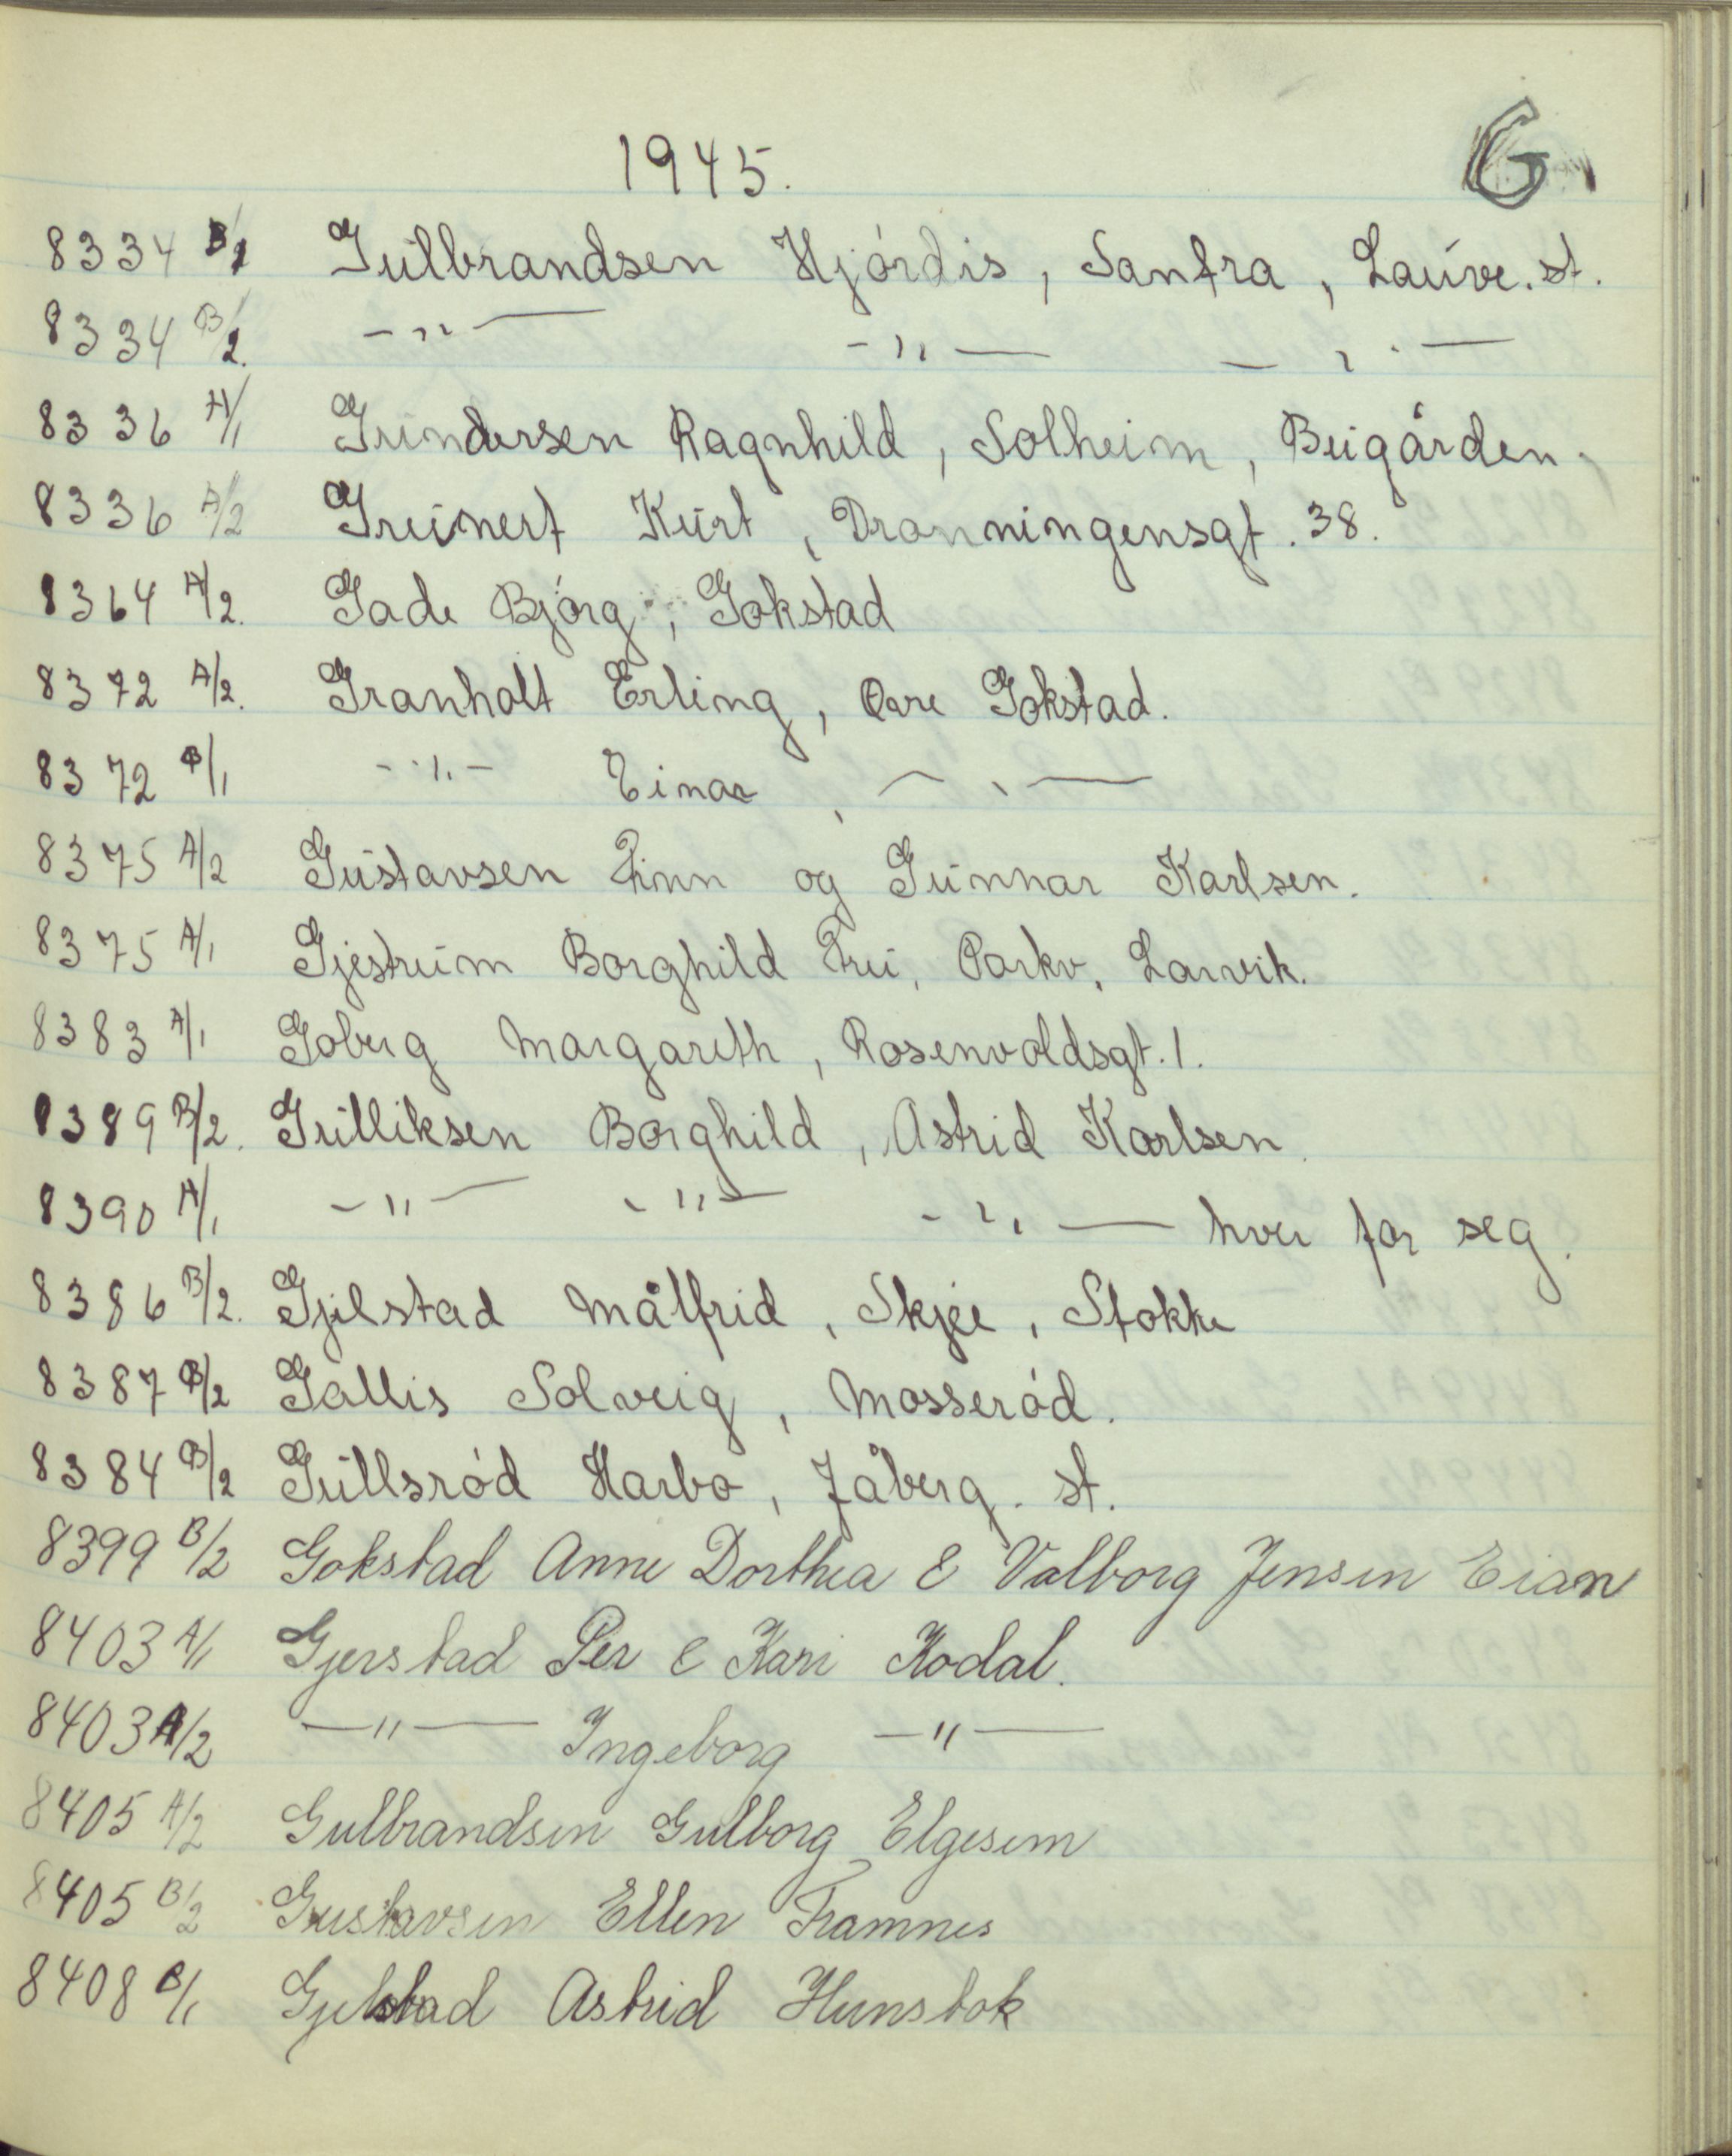 1945.
G
8334 B/1 Gulbrandsen Hjórdis, Santra, Lauve. st.
8334 B/2. -„- -„- -„-
8336 A/1 Gundersen Ragnhild, Solheim, Bugården.
8336 A/2 Greinert Kurt, Dronningensgt. 38.
8364 A/2. Gade Bjórg, Gokstad
8372 A/2. Granholt Erling, Øvre Gokstad.
8372 B/1 -„- Einar, -„-
8375 A/2 Gustavsen Finn og Gunnar Karlsen.
8375 A/1 Gjestrum Borghild Fru, Parkv. Larvik.
8383 A/1 Goberg Margareth, Rosenvoldsgt. 1.
8389 B/2. Gulliksen Borghild, Astrid Karlsen.
8390 A/1 -„- -„- -„- hver for seg.
8386 B/2. Gjelstad Målfrid, Skjee, Stokke
8387 B/2 Gallis Solveig, Mosseród.
8384 B/2 Gullsród Harbo, Jåberg. st.
8399 B/2 Gokstad Anne Dorthea & Valborg Jensen Eian
8403 A/1 Gjerstad Per & Kari Kodal.
8403 A/2 -„- Ingeborg -„-
8405 A/2 Gulbrandsen Gulborg Elgesem
8405 B/2 Gustavsen Ellen Framnes
8408 B/1 Gjelstad Astrid Hunstok